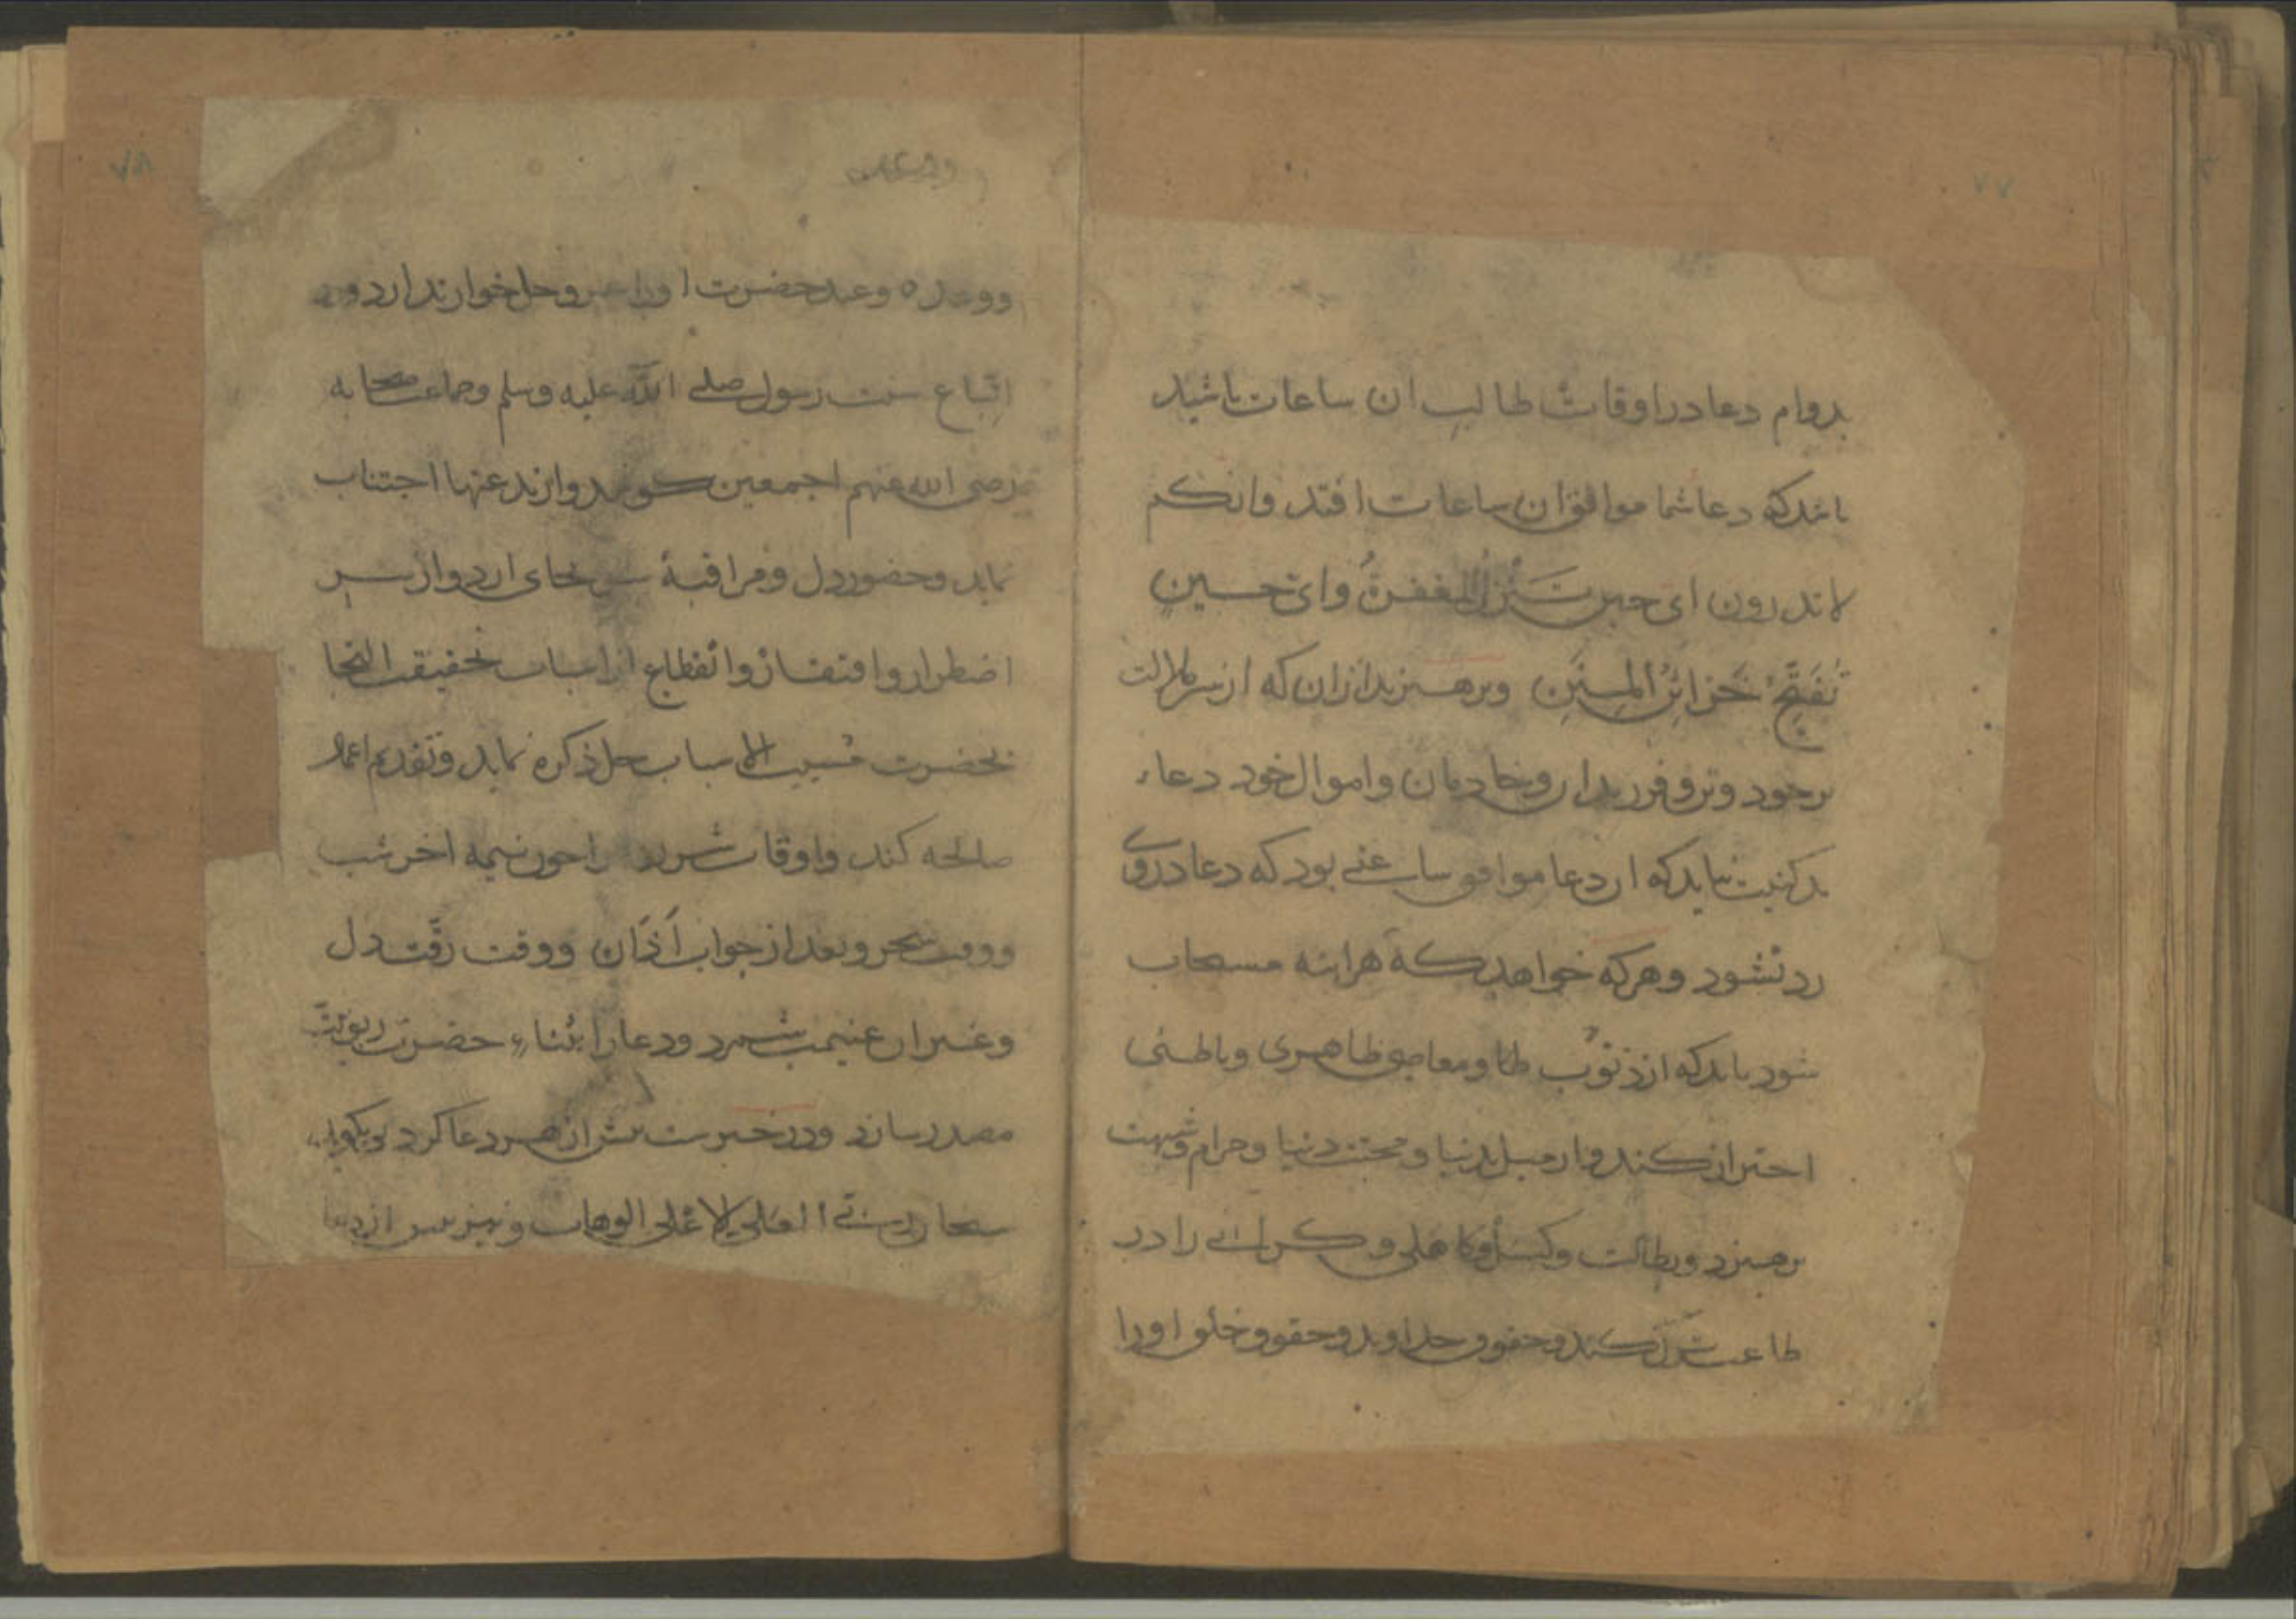 ۷۷
بدوام دعا در اوقات طالب ان ساعات باشید
باشد که دعا شما موافق ان ساعات افتد وانکم
لاتدرون ای حین تَنْزِلُ المغفرةُ وای حسینٍ
تُفَتَّحُ خَزائِنُ المِنَنِ وبرهیزید ازان که از سر ملالت
برخود وبر وفرزندان وخادمان واموال خود دعاء
بد کنیت نباید که ان دعا موافق ساعتی بود که دعا دروی
رد نشود وهرکه خواهد که هراینه مستجاب
شود باید که از ذنُوب ومعاصی ظاهری وباطنی
احتراز کند واز میل بدنیا ومحبت دنیا وحرام وشبهت
برهیزد وبطالت وکسل وکاهلی و را در
طاعت ترک کند وحقوق خداوند وحقوق خلق اورا
۷۸
ووعده وعید حضرت اورا وحل خوار ندارد ودر
اتباع سنت رسول صلی الله علیه وسلم وجماعت صحابه
رضی الله عنهم اجمعین کوشد واز بدعتها اجتناب
نماید وحضور دل ومراقبهٔ سر بجای ارد واز سر
اضطرار وافتقار وانقطاع از اسباب بحقیقت التجا
بحضرت مُسبب الاسباب جل ذکره نماید وتقدیم اعمال
صالحه کند واوقات شریف را چون نیمه اخر شب
ووقت سحر وبعد از جواب اَذان ووقت رقّت دل
وغیر ان غنیمت شمرد ودعا را بثناء حضرت ربوبیّت
مصدر سازد ودر خبرست بیش از هر دعا کرد وبکوید
سبحان ربی العلی الاعلی الوهاب ونیز بیش از دعا